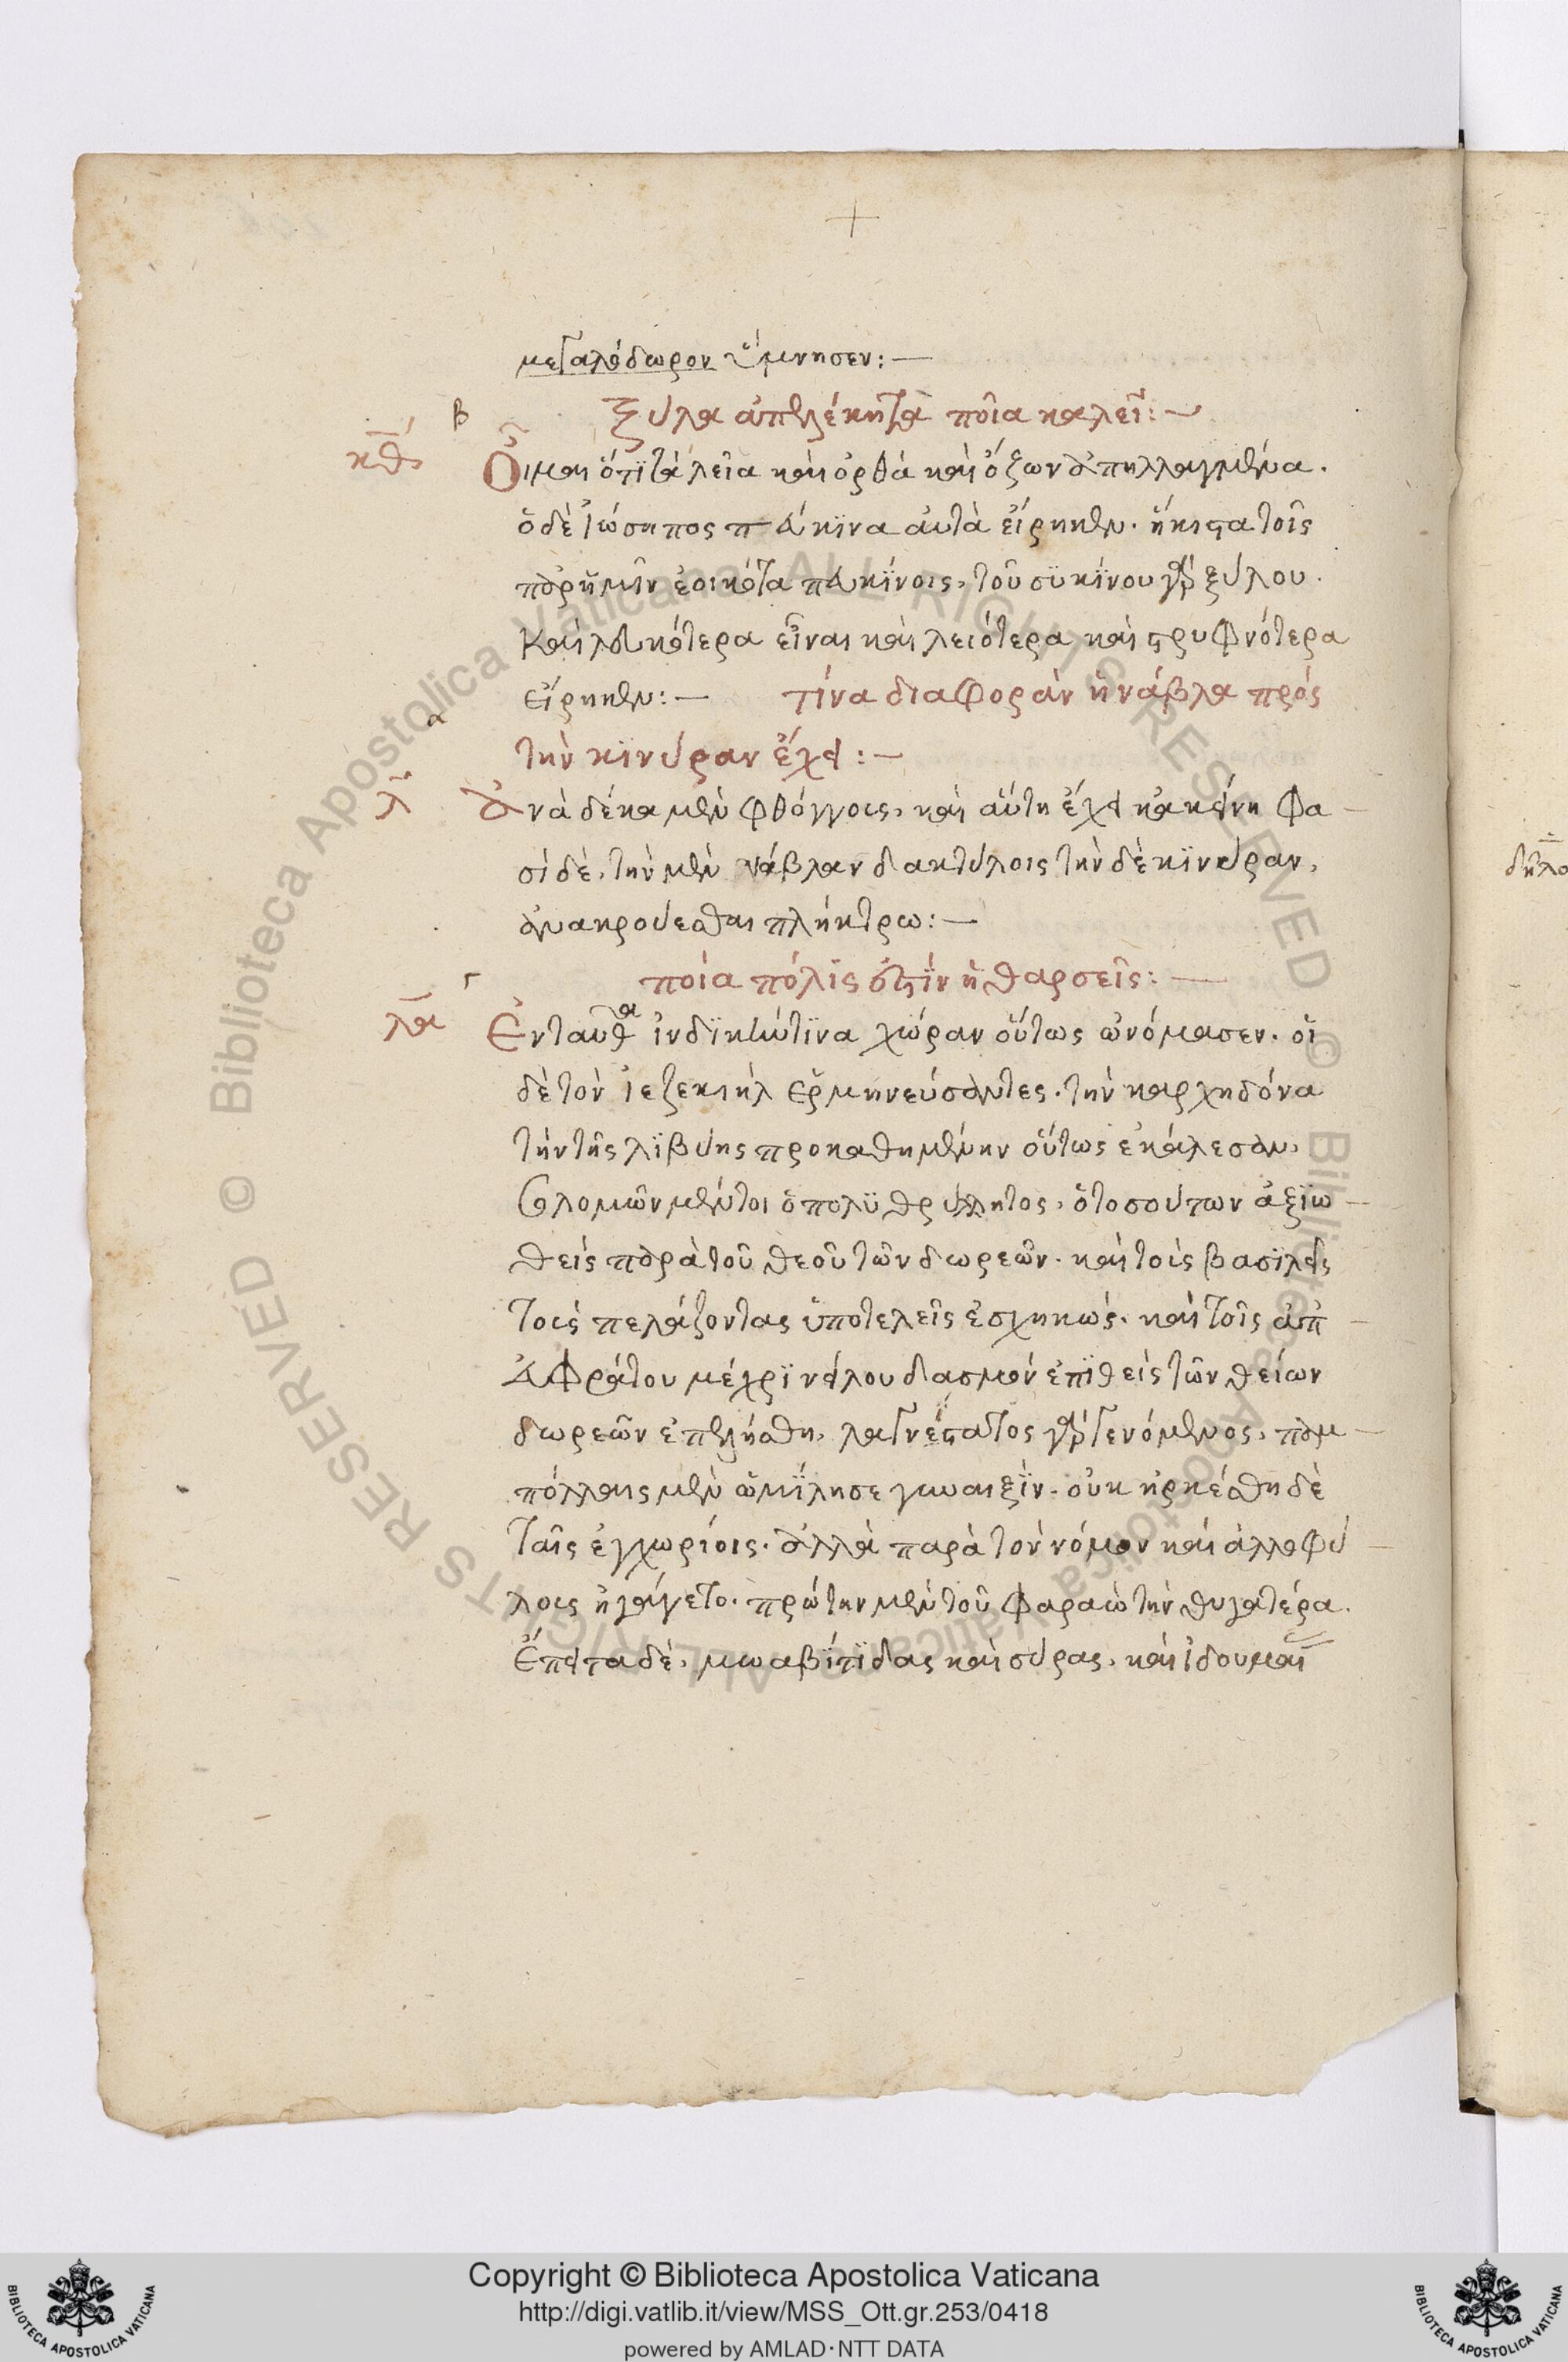 μεγαλόδωρον ὕμνησεν:—
β ξύλα ἀπελέκητα ποῖα καλεῖ:—
κθ Οἶμαι ὅτι τὰ λεῖα καὶ ὀρθὰ καὶ ὄζων ἀπηλλαγμένα.
ὁ δὲ ἰώσηπος πεύκϊνα αὐτὰ εἴρηκεν. ἥκιστα τοῖς
παρ ἡμῖν ἐοικότα πευκΐνοις, τοῦ συκΐνου γὰρ ξύλου.
καὶ λευκότερα εἶναι καὶ λειότερα καὶ στρυφνότερα
εἴρηκεν:— τίνα διαφορὰν ἡ νάβλα πρὸς
α τὴν κϊνύραν ἔχει:—
λ Ἀνὰ δέκα μὲν φθόγγους, καὶ αὕτη ἔχει κἀκείνη φα–
σὶ δὲ, τὴν μὲν νάβλαν δακτύλοις τὴν δὲ κϊνύραν,
ἀνακρούεσθαι πλήκτρω:—
γ ποία πόλϊς ἐστὶν ἡ θαρσεῖς:—
λα Ἐνταῦθα ἰνδϊκήν τϊνα χώραν οὕτως ὠνόμασεν. οἱ
δὲ τὸν ἰεζεκιὴλ ἑρμηνεύσαντες. τὴν καρχηδόνα
τὴν τῆς λϊβύης προκαθημένην οὕτως ἐκάλεσαν,
Σολομῶν μέντοι ὁ πολϋθρύλλητος, ὁ τοσούτων ἀξϊω–
θεὶς παρὰ τοῦ θεοῦ τῶν δωρεῶν. καὶ τοὺς βασϊλεῖς
τοὺς πελάζοντας ὑποτελεῖς ἐσχηκώς. καὶ τοῖς ἀπ –
εὐφράτου μέχρϊ νείλου δασμὸν ἐπϊθεὶς τῶν θείων
δωρεῶν ἐπελήσθη, λαγνέστατος γὰρ γενόμενος, παμ–
πόλλαις μὲν ὡμΐλησε γυναιξΐν. οὐκ ἠρκέσθη δὲ
ταῖς ἐγχωρίοις. ἀλλὰ παρὰ τὸν νόμον καὶ ἀλλοφύ –
λους ἠγάγετο. πρώτην μὲν τοῦ φαραὼ τὴν θυγατέρα.
Ἔπειτα δὲ, μωαβΐτϊδας καὶ σύρας, καὶ ἰδουμαί
δηλο
Copyright © Biblioteca Apostolica Vaticana
http://digi.vatlib.it/view/MSS_Ott.gr.253/0418
powered by AMLAD·NTT DATA